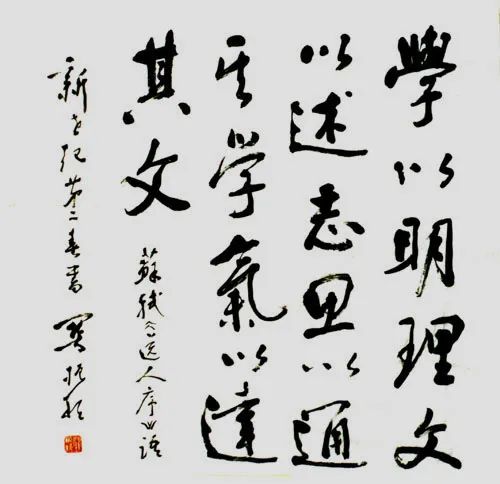 學以明理文
以述志思以通
其学氣以達
其文
蘇軾送人序語
新世纪第二春書